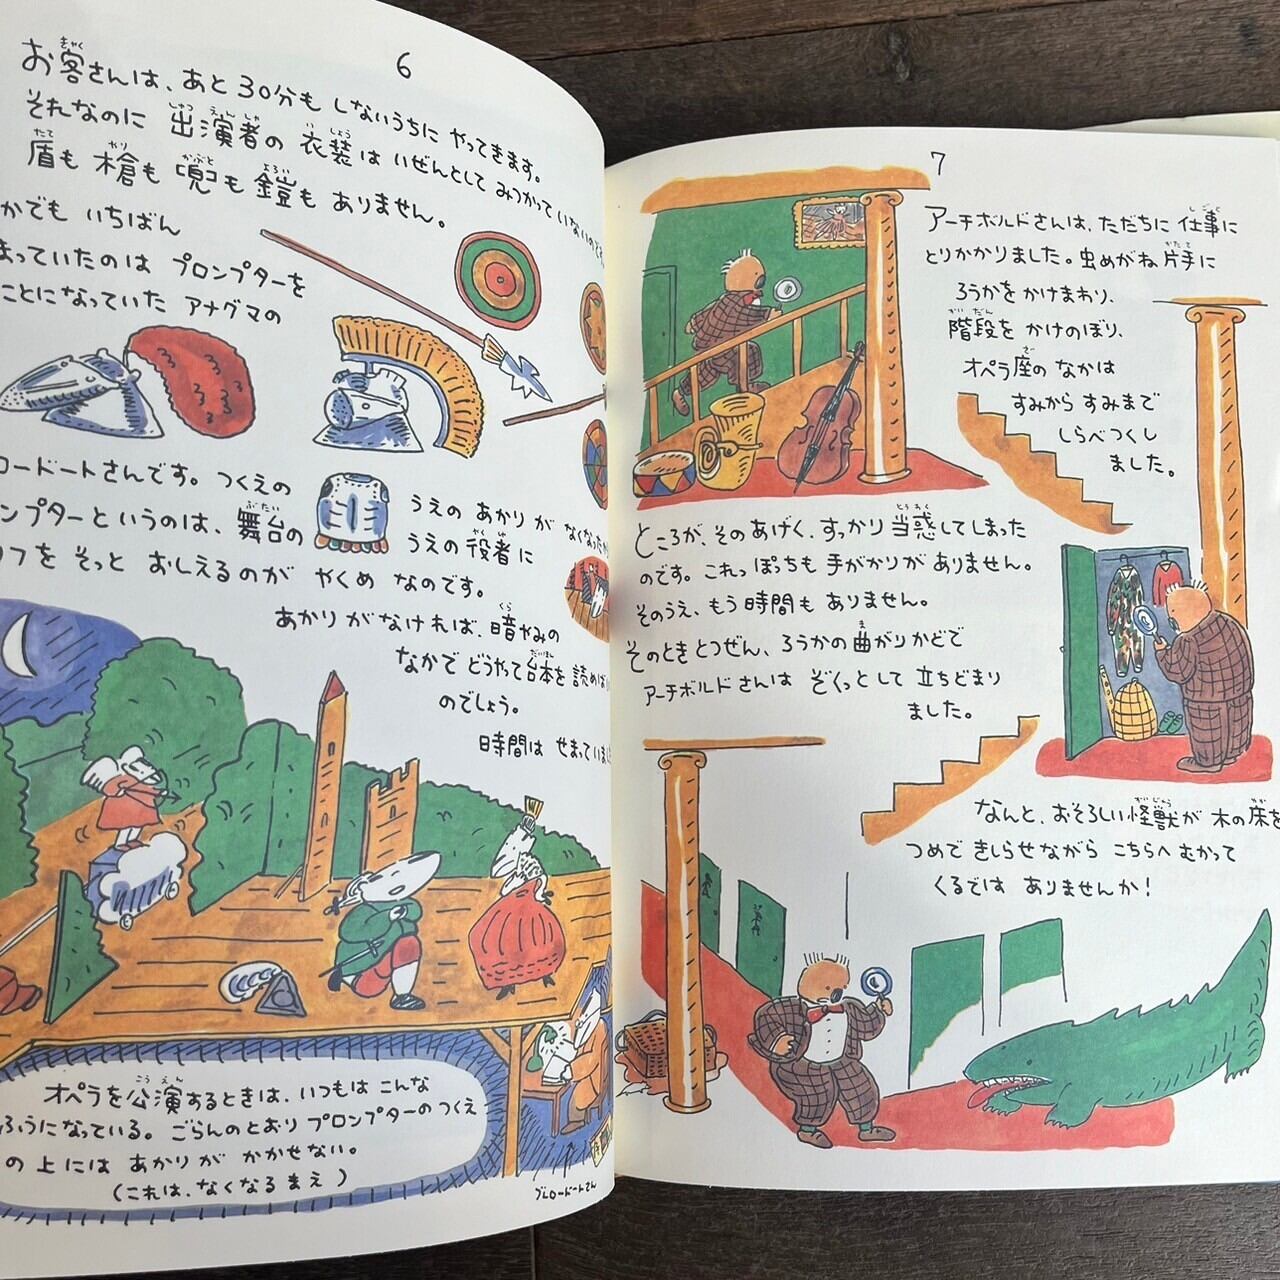 6
お客さんは、あと30分も しないうちに やってきます。
それなのに 出演者の 衣装は いぜんとして みつかって いないのです
盾も 槍も 兜も 鎧も ありません。
かでも いちばん
まっていたのは プロンプターを
ことになっていた アナグマの
ロードートさんです。つくえの うえの あかりが なくなったか
ンプターというのは、舞台の うえの 役者に
リフを そっと おしえるのが やくめ なのです。
あかりがなければ、暗やみの
なかで どうやって台本を 読めば
のでしょう。
時間は せまっています
オペラを公演するときは、いつもは こんな
ふうになっている。ごらんのとおり プロンプターのつくえ
の上には あかりが かかせない。
(これは、なくなる まえ)
ブレロードートさん
7
アーチボルドさんは、ただちに 仕事に
とりかかりました。虫めがね片手に
ろうかを かけまわり、
階段を かけのぼり、
オペラ座の なかは
すみから すみまで
しらべつくし
ました。
ところが、そのあげく、すっかり 当惑してしまった
のです。これっぽっちも 手がかりが ありません。
そのうえ、もう 時間も ありません。
そのとき とつぜん、ろうかの 曲がりかどで
アーチボルドさんは ぞくっとして 立ちどまり
ました。
なんと、おそろしい怪獣が 木の床を
つめで きしらせながら こちらへ むかって
くるでは ありませんか！